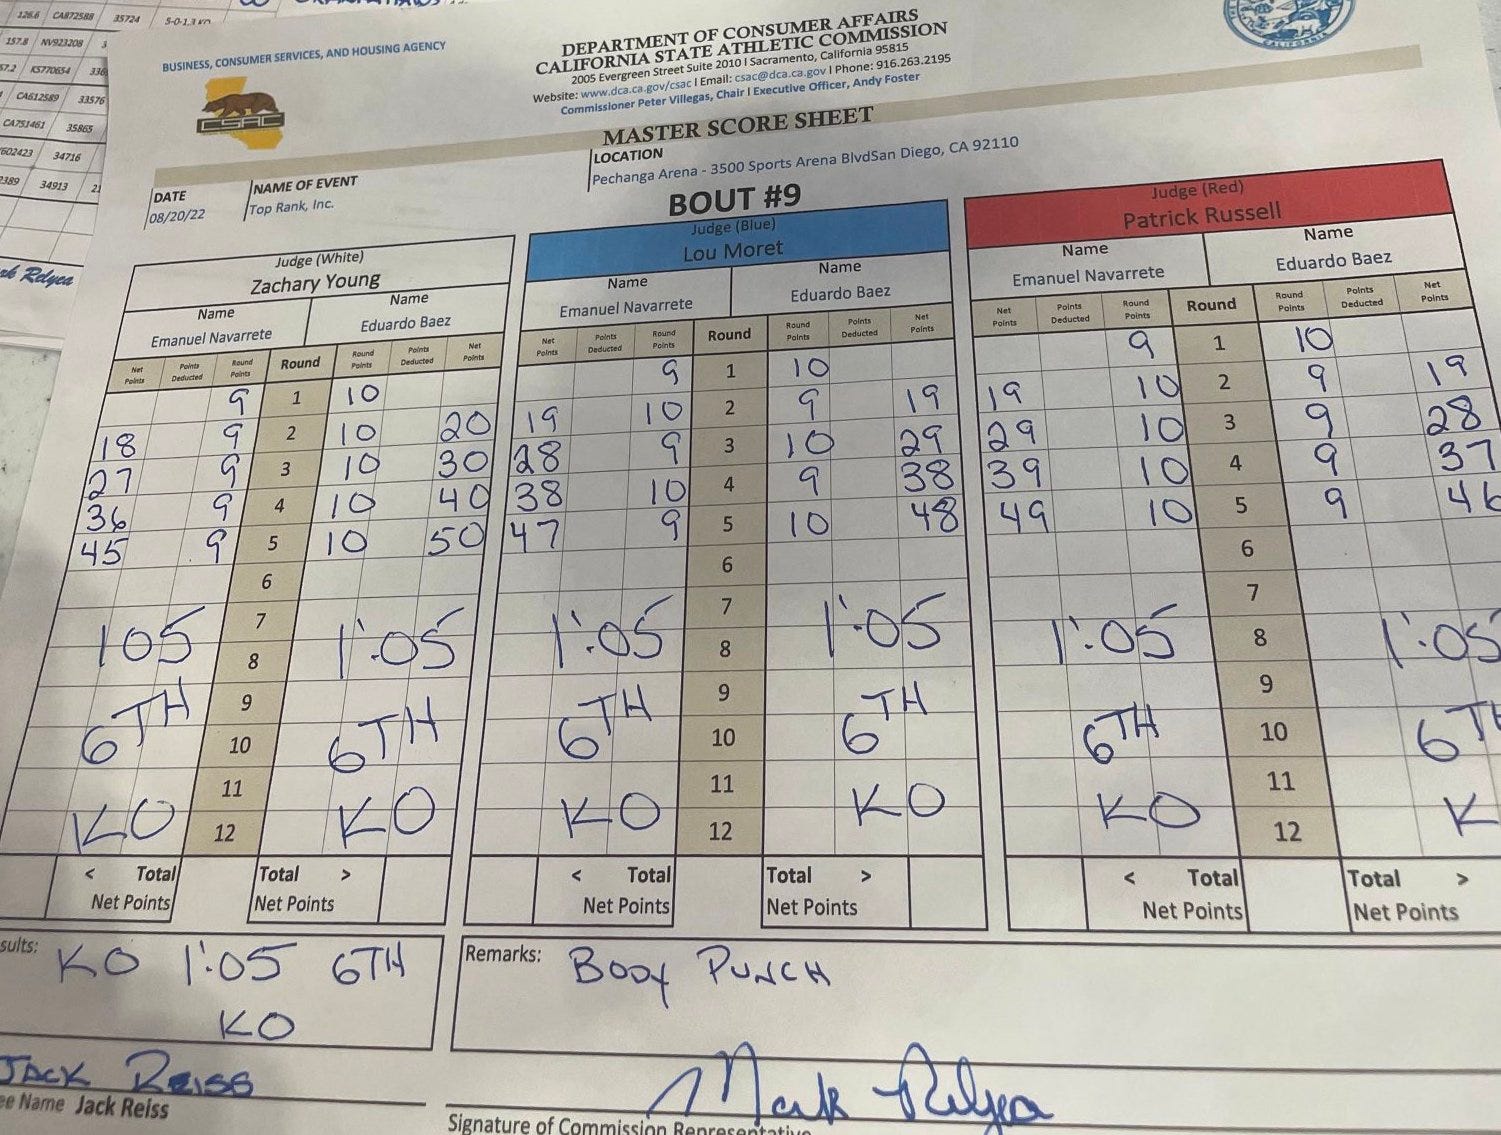 126.6 CA872588 35724 5-0-1,3 KO
157.8 NV923208 3
57.2 KS770654 336
CA612589 33576
CA751461 35865
602423 34716
2389 34913 21
rk Relyea
BUSINESS, CONSUMER SERVICES, AND HOUSING AGENCY
CSAC
DEPARTMENT OF CONSUMER AFFAIRS
CALIFORNIA STATE ATHLETIC COMMISSION
2005 Evergreen Street Suite 2010 I Sacramento, California 95815
Website: www.dca.ca.gov/csac I Email: csac@dca.ca.gov I Phone: 916.263.2195
Commissioner Peter Villegas, Chair I Executive Officer, Andy Foster
CALIFORNIA
MASTER SCORE SHEET
DATE NAME OF EVENT LOCATION
08/20/22 Top Rank, Inc. Pechanga Arena - 3500 Sports Arena BlvdSan Diego, CA 92110
BOUT #9
Judge (White)
Zachary Young
Name Name
Emanuel Navarrete Eduardo Baez
Net Points Points Deducted Round Points Round Round Points Points Deducted Net Points
9 1 10
18 9 2 10 20
27 9 3 10 30
36 9 4 10 40
45 9 5 10 50
6
7
105 1:05
8
9
6TH 6TH
10
11
KO KO
12
< Total Total >
Net Points Net Points
Judge (Blue)
Lou Moret
Name Name
Emanuel Navarrete Eduardo Baez
Net Points Points Deducted Round Points Round Round Points Points Deducted Net Points
9 1 10
19 10 2 9 19
28 9 3 10 29
38 10 4 9 38
47 9 5 10 48
6
7
1:05 1:05
8
9
6TH 6TH
10
11
KO KO
12
< Total Total >
Net Points Net Points
Judge (Red)
Patrick Russell
Name Name
Emanuel Navarrete Eduardo Baez
Net Points Points Deducted Round Points Round Round Points Points Deducted Net Points
9 1 10
19 10 2 9 19
29 10 3 9 28
39 10 4 9 37
49 10 5 9 46
6
7
1:05 8 1:05
9
6TH 10 6TH
11
KO 12 K
< Total Total >
Net Points Net Points
sults: KO 1:05 6TH
KO
Remarks: BODY PUNCH
JACK REISS
ee Name Jack Reiss
Mark Relyea
Signature of Commission Representative